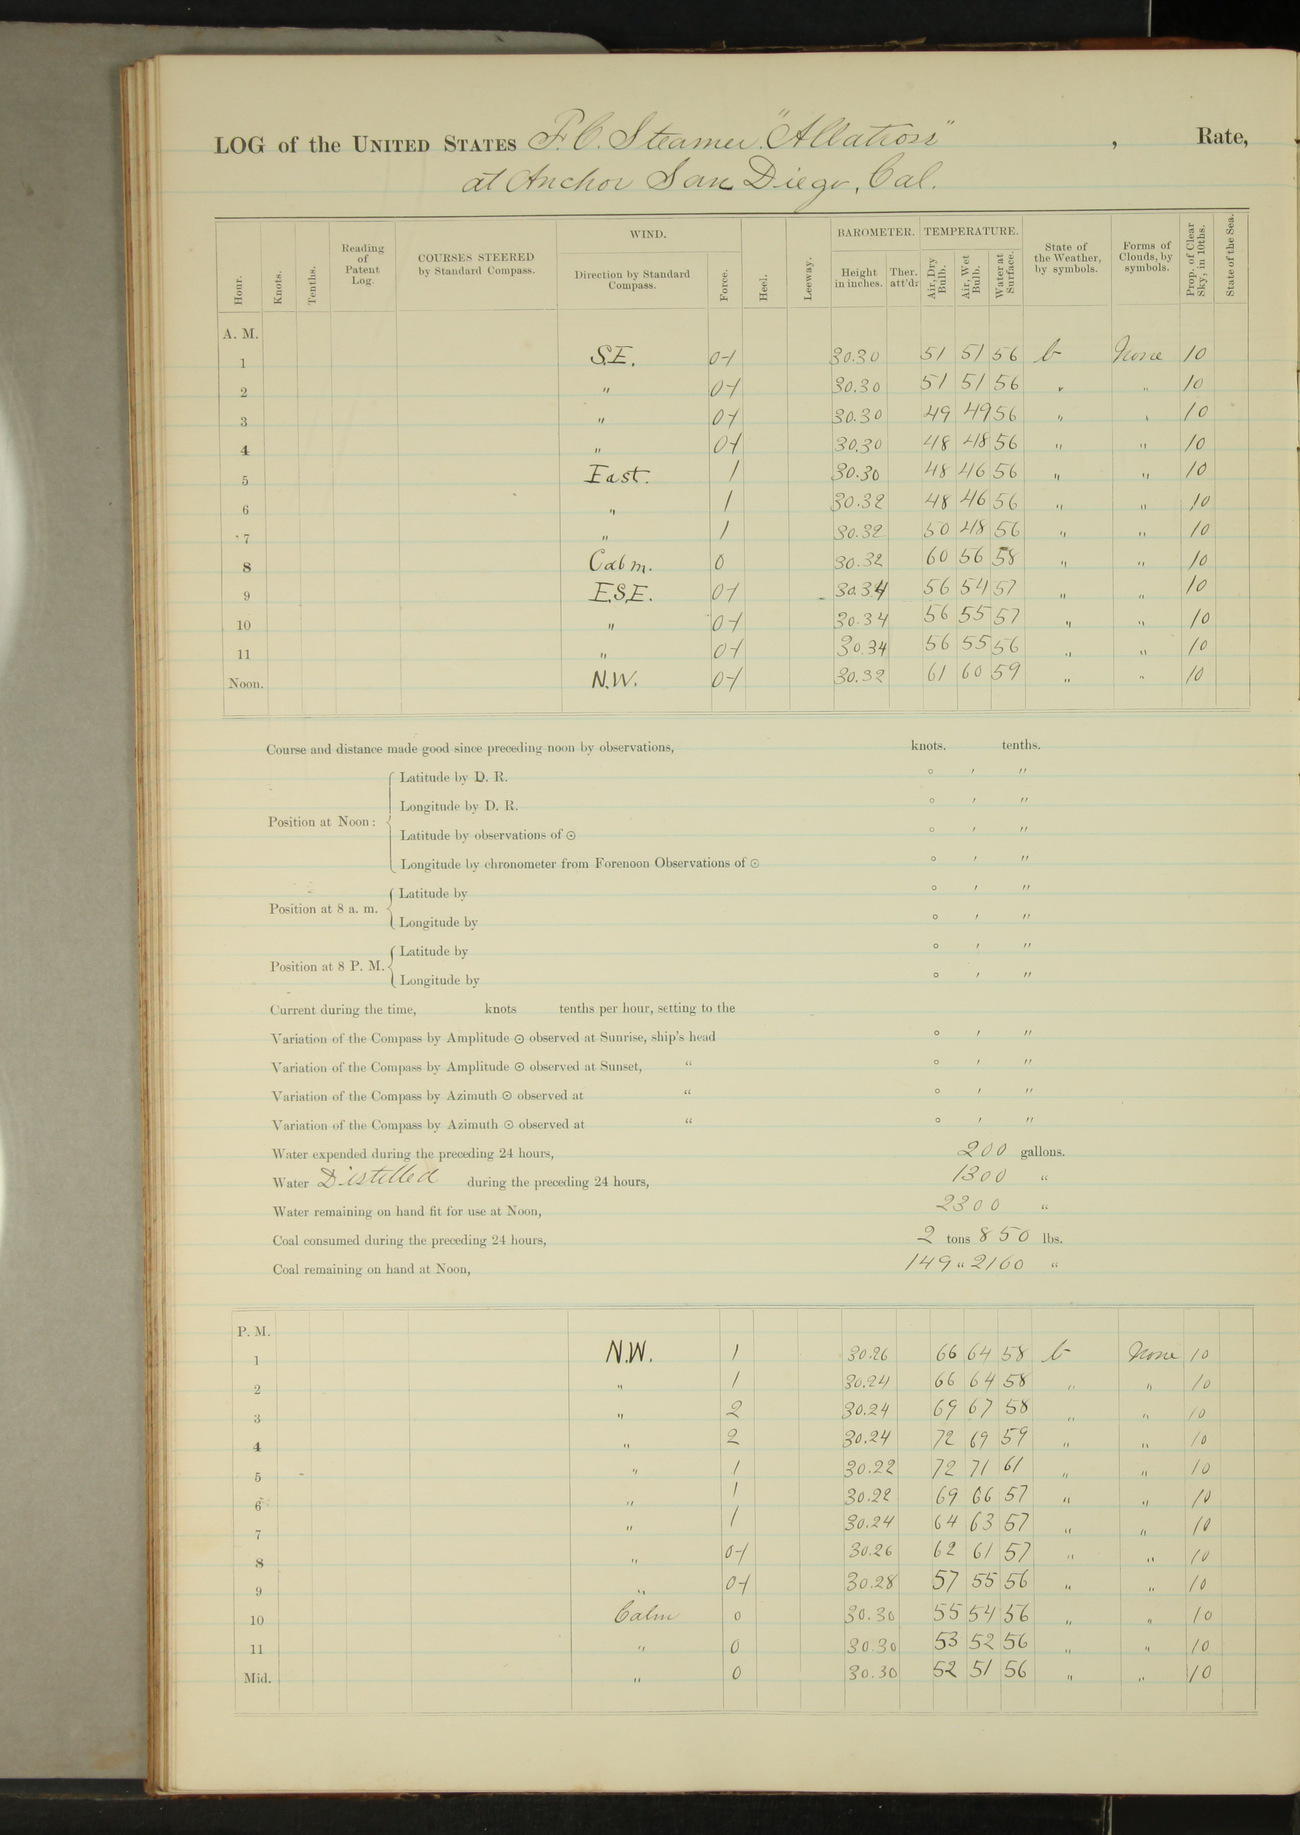 LOG of the UNITED STATES F. C. Steamer "Albatross", Rate,
at Anchor San Diego, Cal.
Hour. Knots. Tenths. Reading of Patent Log. COURSES STEERED by Standard Compass. WIND. Direction by Standard Compass. Force. Heel. Leeway. BAROMETER. Height in inches. Ther. att'd. TEMPERATURE. Air, Dry Bulb. Air, Wet Bulb. Water at Surface. State of the Weather, by symbols. Forms of Clouds, by symbols. Prop. of Clear Sky, in 10ths. State of the Sea.
A. M.
1 S.E. 0-1 30.30 51 51 56 b None 10
2 " 0-1 30.30 51 51 56 " " 10
3 " 0-1 30.30 49 49 56 " " 10
4 " 0-1 30.30 48 48 56 " " 10
5 East. 1 30.30 48 46 56 " " 10
6 " 1 30.32 48 46 56 " " 10
7 " 1 30.32 50 48 56 " " 10
8 Calm. 0 30.32 60 56 58 " " 10
9 E.S.E. 0-1 30.34 56 54 57 " " 10
10 " 0-1 30.34 56 55 57 " " 10
11 " 0-1 30.34 56 55 56 " " 10
Noon. N.W. 0-1 30.32 61 60 59 " " 10
Course and distance made good since preceding noon by observations, knots. tenths.
Position at Noon:
Latitude by D. R. ° ′ ″
Longitude by D. R. ° ′ ″
Latitude by observations of ⊙ ° ′ ″
Longitude by chronometer from Forenoon Observations of ⊙ ° ′ ″
Position at 8 a. m.
Latitude by ° ′ ″
Longitude by ° ′ ″
Position at 8 P. M.
Latitude by ° ′ ″
Longitude by ° ′ ″
Current during the time, knots tenths per hour, setting to the
Variation of the Compass by Amplitude ⊙ observed at Sunrise, ship's head ° ′ ″
Variation of the Compass by Amplitude ⊙ observed at Sunset, “ ° ′ ″
Variation of the Compass by Azimuth ⊙ observed at “ ° ′ ″
Variation of the Compass by Azimuth ⊙ observed at “ ° ′ ″
Water expended during the preceding 24 hours, 200 gallons.
Water Distilled during the preceding 24 hours, 1300 “
Water remaining on hand fit for use at Noon, 2300 “
Coal consumed during the preceding 24 hours, 2 tons 850 lbs.
Coal remaining on hand at Noon, 149 “ 2160 “
P. M.
1 N.W. 1 30.26 66 64 58 b None 10
2 " 1 30.24 66 64 58 " " 10
3 " 2 30.24 69 67 58 " " 10
4 " 2 30.24 72 69 59 " " 10
5 " 1 30.22 72 71 61 " " 10
6 " 1 30.22 69 66 57 " " 10
7 " 1 30.24 64 63 57 " " 10
8 " 0-1 30.26 62 61 57 " " 10
9 " 0-1 30.28 57 55 56 " " 10
10 Calm 0 30.30 55 54 56 " " 10
11 " 0 30.30 53 52 56 " " 10
Mid. " 0 30.30 52 51 56 " " 10